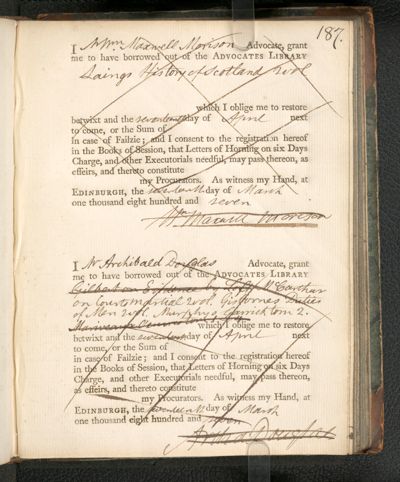 187.
I Mr Wm. Maxwell Morison Advocate, grant
me to have borrowed out of the ADVOCATES LIBRARY
Laings History of Scotland 2 vol
which I oblige me to restore
betwixt and the seventeenth day of April next
to come, or the Sum of
in case of Failzie; and I consent to the registration hereof
in the Books of Session, that Letters of Horning on six Days
Charge, and other Executorials needful, may pass thereon, as
effeirs, and thereto constitute
my Procurators. As witness my Hand, at
EDINBURGH, the day of March
one thousand eight hundred and seven
Wm Maxwell Morison
I Mr Archibald Douglas Advocate, grant
me to have borrowed out of the ADVOCATES LIBRARY
Gilbert on Evidence by Lofft McCarthur
on Courts martial 2 vol. Gisbornes Duties
of Men 2 vol. Murphys Garrick tom 2.
which I oblige me to restore
betwixt and the seventeenth day of April next
to come, or the Sum of
in case of Failzie; and I consent to the registration hereof
in the Books of Session, that Letters of Horning on six Days
Charge, and other Executorials needful, may pass thereon,
as effeirs, and thereto constitute
my Procurators. As witness my Hand, at
EDINBURGH, the seventeenth day of March
one thousand eight hundred and seven
Archd Douglas